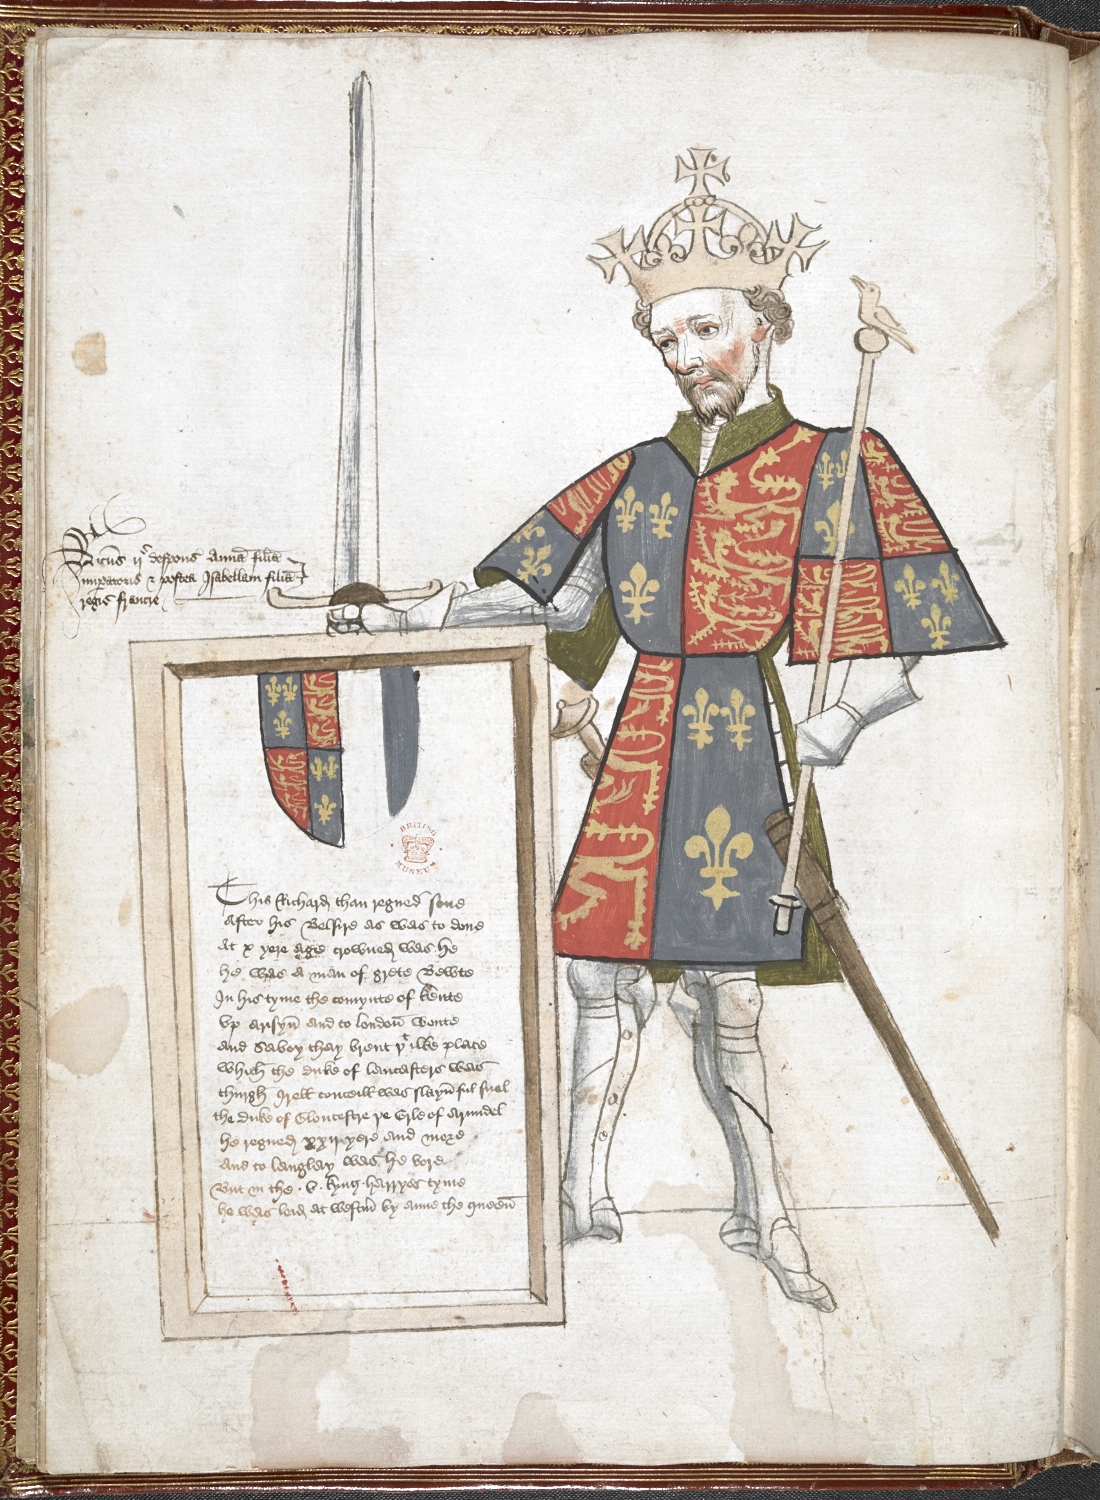 Ricūs ijᵈ despons Annā filiā
imperatoris & postea Isabellam filiā
regis francie
BRITISH
MUSEUM
This Richard than regned sone
After his Belsire as was to done
At x yere age crowned was he
he was a man of grete Bewte
In his tyme the comynte of kente
Vp arisyn and to london wente
And Savoy thay brent yᵗ ilke place
which the duke of lancasters was
thurgh Irell conceill was slayn ful snel
the duke of Gloucestre ye Erle of Arundel
he regned xxij yere and more
and to langlay was he bore
But in the . v . kyng harryes tyme
he was laid at westm̄ by anne the queen